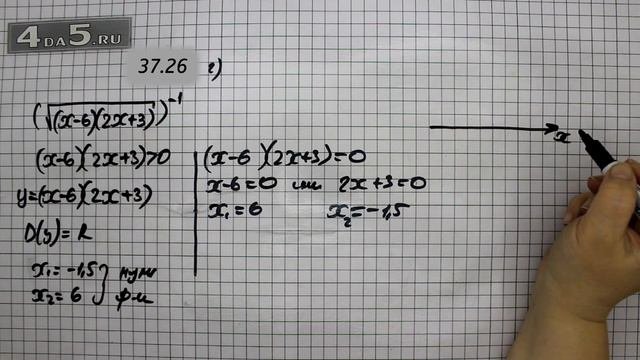 4DA5.RU
37.26 г)
(√(x-6)(2x+3))⁻¹
(x-6)(2x+3)>0
y=(x-6)(2x+3)
D(y)=R
x₁=-1,5
x₂=6
} нули
ф-и
(x-6)(2x+3)=0
x-6=0 или 2x+3=0
x₁=6 x₂=-1,5
x